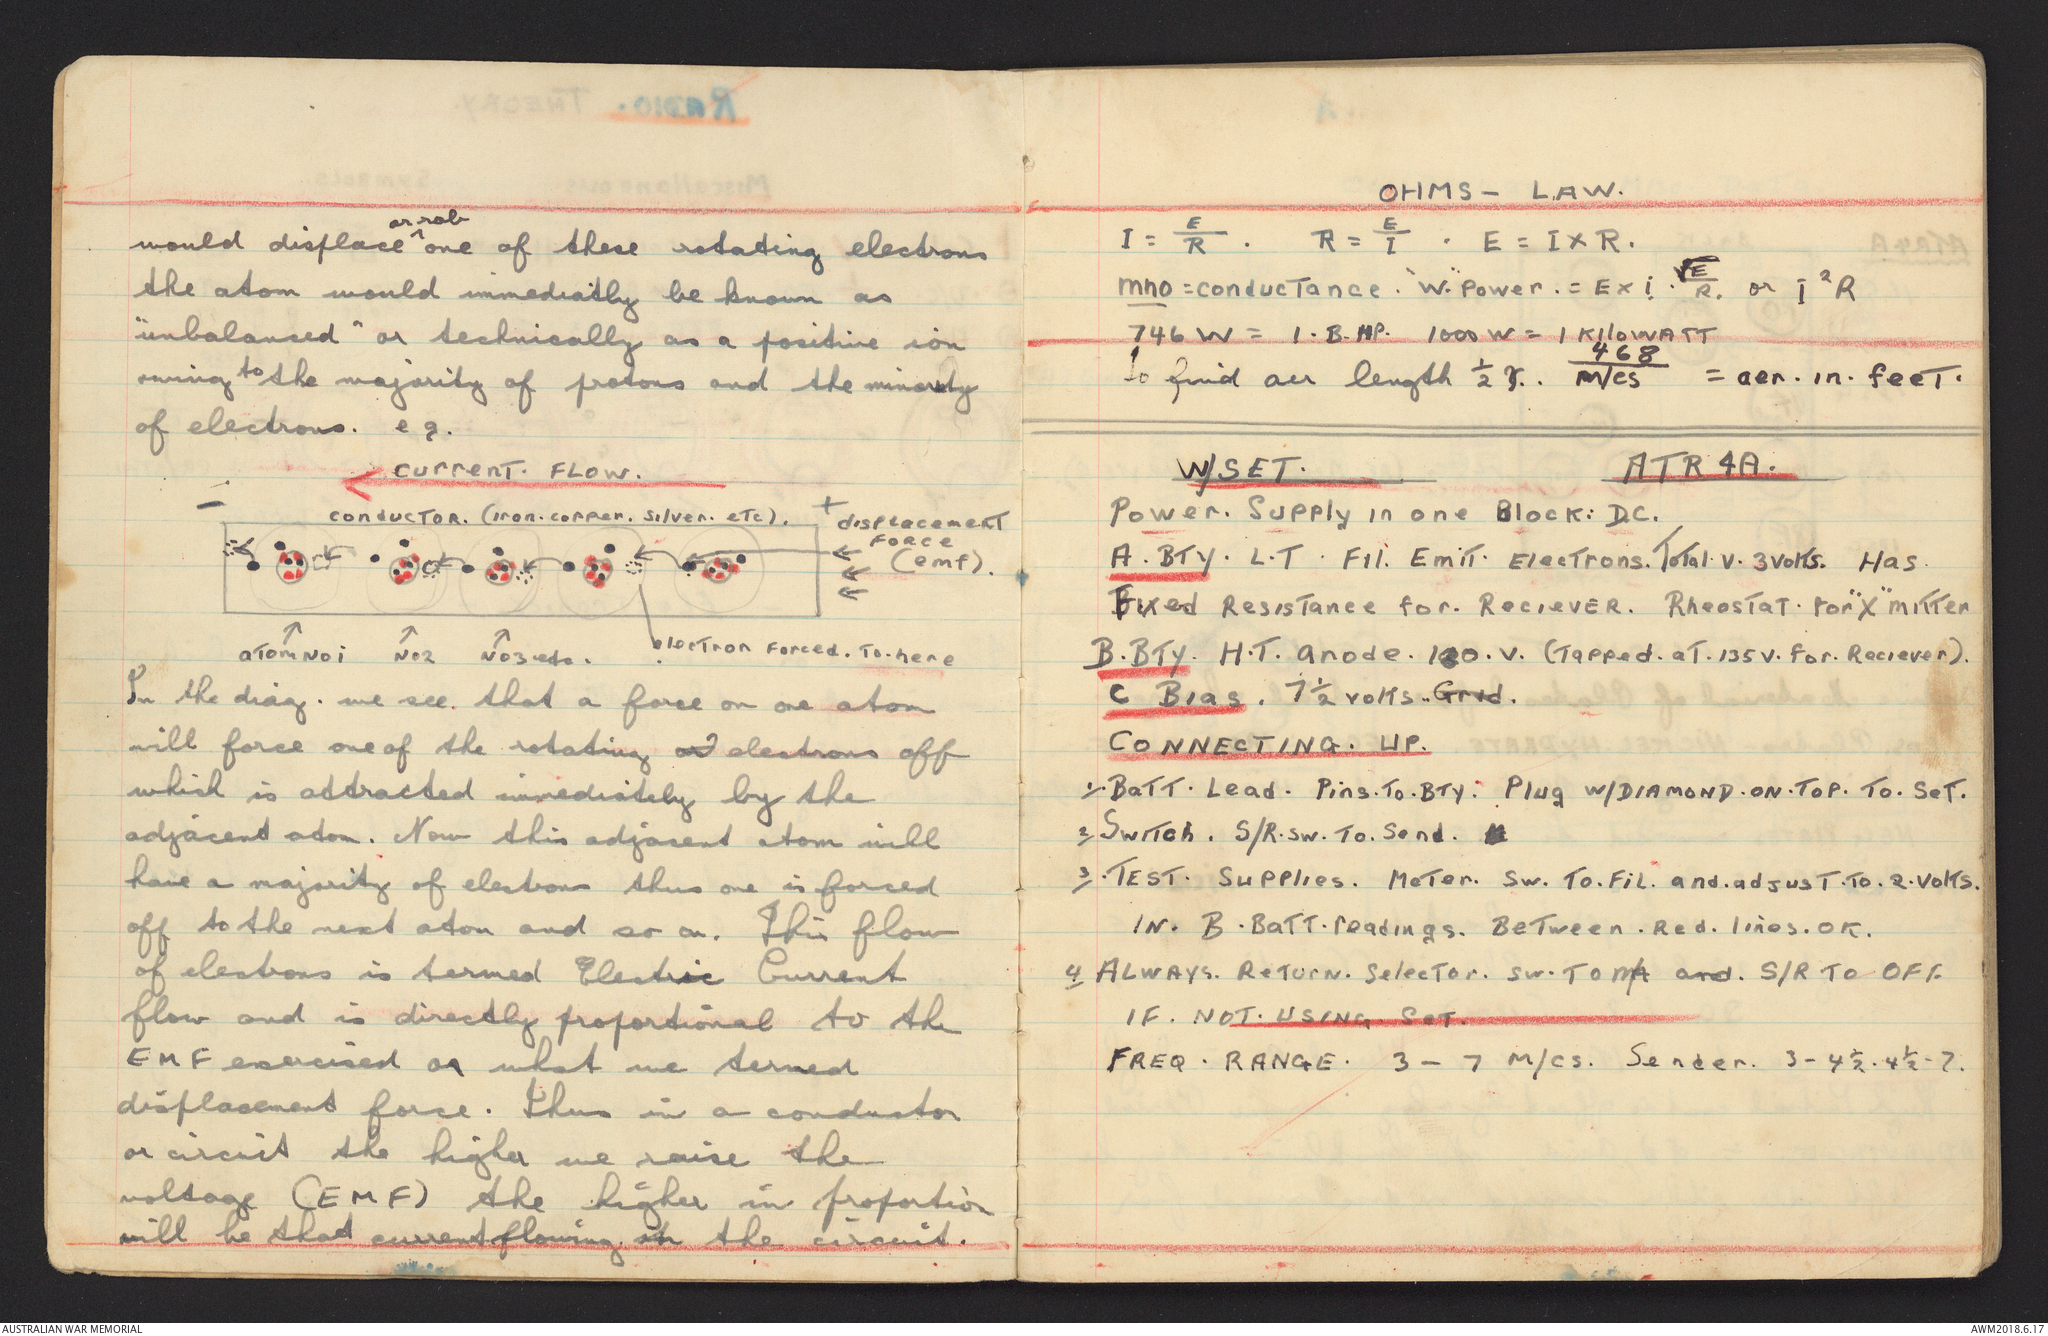 would displace or rob one of these rotating electrons
the atom would immediatly be known as
"unbalanced" or technically as a positive ion
owing to the majority of protons and the minority
of electrons. eg.
CURRENT. FLOW.
- +
CONDUCTOR. (iron. copper. silver. etc).
displacement
FORCE
(emf).
atom No 1 No 2 No 3 etc.
electron forced. to. here
In the diag. we see that a force on one atom
will force one of the rotating electrons off
which is attracted immediately by the
adjacent atom. Now this adjacent atom will
have a majority of electrons thus one is forced
off to the next atom and so on. This flow
of electrons is termed Electric Current
flow and is directly proportional to the
EMF exercised or what we termed
displacement force. Thus in a conductor
or circuit the higher we raise the
voltage (EMF) the higher in proportion
will be that current flowing in the circuit.
OHMS - LAW.
I = E/R . R = E/I . E = I X R.
mho = conductance. "W." Power. = E x i. √E/R. or I²R
746 W = 1. B. HP. 1000 W = 1 KiloWATT
To find aer length ½ λ. 468/M/cs = aer. in. feet.
W/SET. ATR 4A.
Power. Supply in one Block: D.C.
A. BTY. L.T. Fil. Emit. Electrons. Total. V. 3 volts. Has
Fixed Resistance for. Reciever. Rheostat. for "X" mitter
B. BTY. H.T. anode. V. (Tapped. at. 135 V. for. Reciever).
C Bias. 7½ volts. Grid.
CONNECTING. UP.
1. Batt. Lead. Pins. To. BTY. Plug W/DIAMOND. ON. TOP. To. Set.
2 Switch. S/R. SW. To. Send.
3. TEST. Supplies. Meter. Sw. To. Fil. and. adjust. To. 2. volts.
IN. B. Batt. readings. Between. Red. lines. OK.
4 ALWAYS. Return. Selector. SW. To M/A and. S/R To OFF.
IF. NOT. USING SeT.
FREQ. RANGE. 3 - 7 M/cs. Sender. 3 - 4½. 4½ - 7.
AUSTRALIAN WAR MEMORIAL
AWM2018.6.17